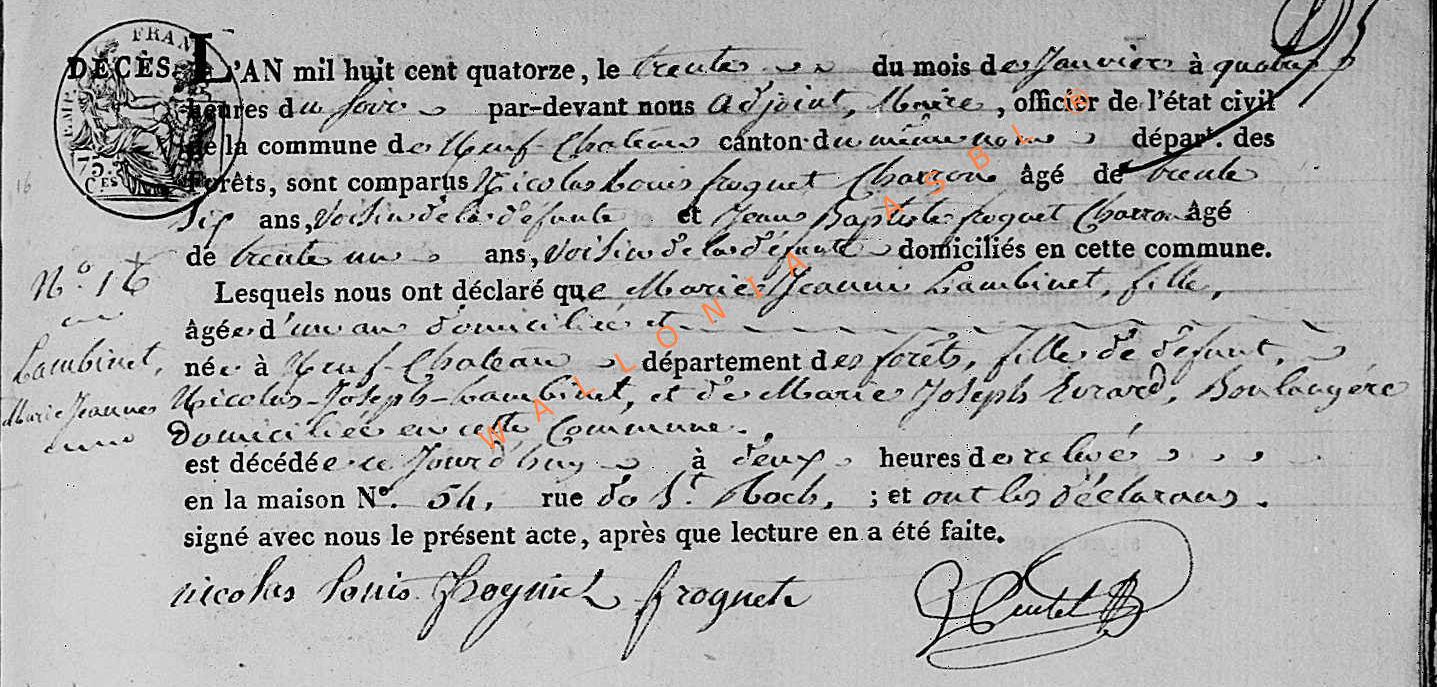 FRAN
EMP.
75.
CES
DÉCÈS. L'AN mil huit cent quatorze, le trente du mois de Janvier à quatre
heures du soir par-devant nous adjoint, Maire, officier de l'état civil
de la commune de Neuf-Chateau canton du même nom dépar. des
Forêts, sont comparus Nicolas Louis froguet Charron âgé de trente
Six ans, Voisin de la défunte et Jean Baptiste froguet Charron âgé
de trente un ans, Voisin de la défunte domiciliés en cette commune.
N.° 16
16
Lesquels nous ont déclaré que Marie Jeanne Lambinet, fille,
âgée d'un an domiciliée et
Lambinet,
née à Neuf-Chateau département des forêts, fille de défunt,
Marie Jeanne
Nicolas-Joseph-Lambinet, et de Marie Joseph Evrard, Boulangère
Domiciliée en cette Commune.
est décédée ce Jourd'huy à deux heures de relevée
en la maison N°. 54, rue de St. Roch, ; et ont les déclarans.
signé avec nous le présent acte, après que lecture en a été faite.
nicolas louis froguet froguet
WALLONIA ASBL ©